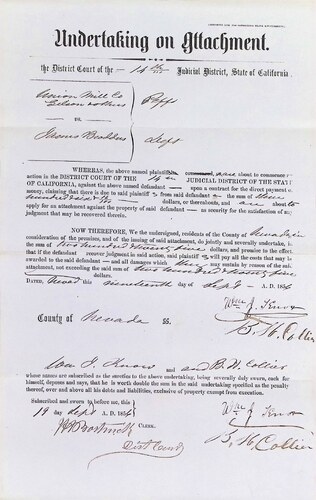 Undertaking on Attachment.
the District Court of the 14th Judicial District, State of California
Union Mill Co
Plffs
vs.
Defts
WHEREAS, the above named plaintiffs commenced, are about to commence
action in the DISTRICT COURT OF THE 14th JUDICIAL DISTRICT OF THE STATE
OF CALIFORNIA, against the above named defendant upon a contract for the direct payment
money, claiming that there is due to said plaintiff from said defendant the sum of
hundred dollars, or thereabouts, and are about to
apply for an attachment against the property of said defendant as security for the satisfaction of any
judgment that may be recovered therein.
NOW THEREFORE, We the undersigned, residents of the County of Nevada in
consideration of the premises, and of the issuing of said attachment, do jointly and severally undertake, in
the sum of two hundred & twenty five dollars, and promise to the effect
that if the defendant recover judgment in said action, said plaintiffs will pay all the costs that may be
awarded to the said defendant and all damages which may sustain by reason of the said
attachment, not exceeding the said sum of two hundred & twenty five
dollars.
DATED, nineteenth day of Sept A. D. 1856
Wm J. Knox
B. W. Collier
County of Nevada SS.
Wm J. Knox and B. W. Collier
whose names are subscribed as the sureties to the above undertaking, being severally duly sworn, each for
himself, deposes and says, that he is worth double the sum in the said undertaking specified as the penalty
thereof, over and above all his debts and liabilities, exclusive of property exempt from execution.
Subscribed and sworn to before me, this
19 day Sept A. D. 1856
Wm J. Knox
CLERK.
B. W. Collier
Dist Court